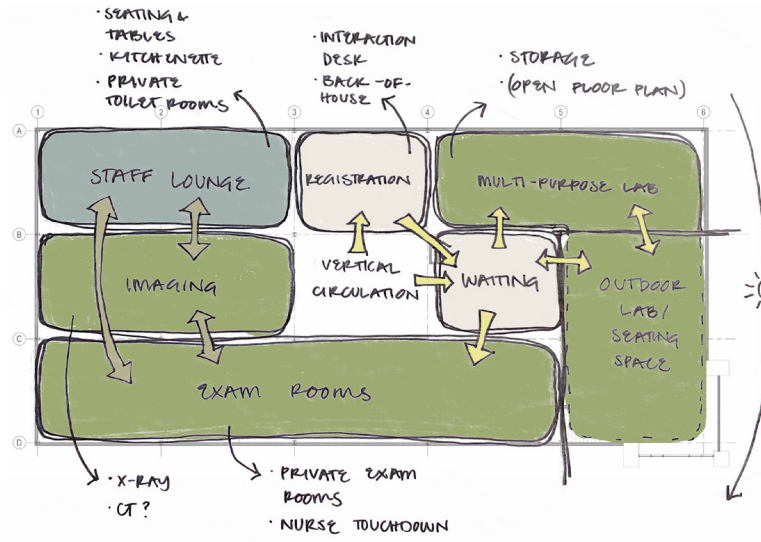 · SEATING &
TABLES
· KITCHENETTE
· PRIVATE
TOILET ROOMS
· INTERACTION
DESK
· BACK-OF-
HOUSE
· STORAGE
· (OPEN FLOOR PLAN)
1
3
4
5
6
A
STAFF LOUNGE
REGISTRATION
MULTI-PURPOSE LAB
B
IMAGING
VERTICAL
CIRCULATION
WAITING
OUTDOOR
LAB/
SEATING
SPACE
C
EXAM ROOMS
D
· X-RAY
· CT?
· PRIVATE EXAM
ROOMS
· NURSE TOUCHDOWN